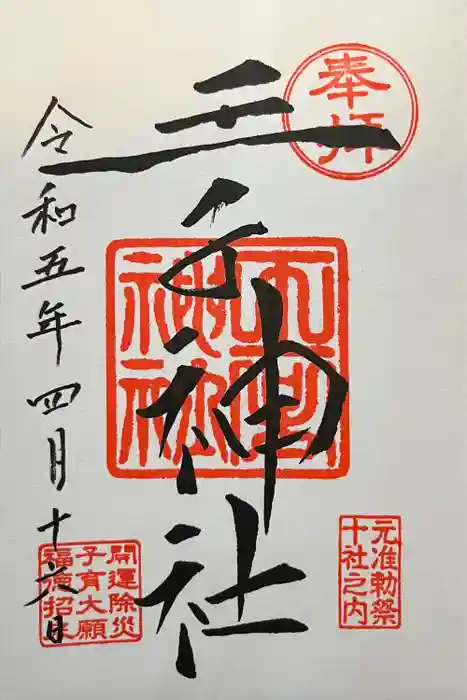 奉拝
元准勅祭
十社之内
王子神社
王子神社
開運除災
子育大願
福徳招来
令和五年四月十六日